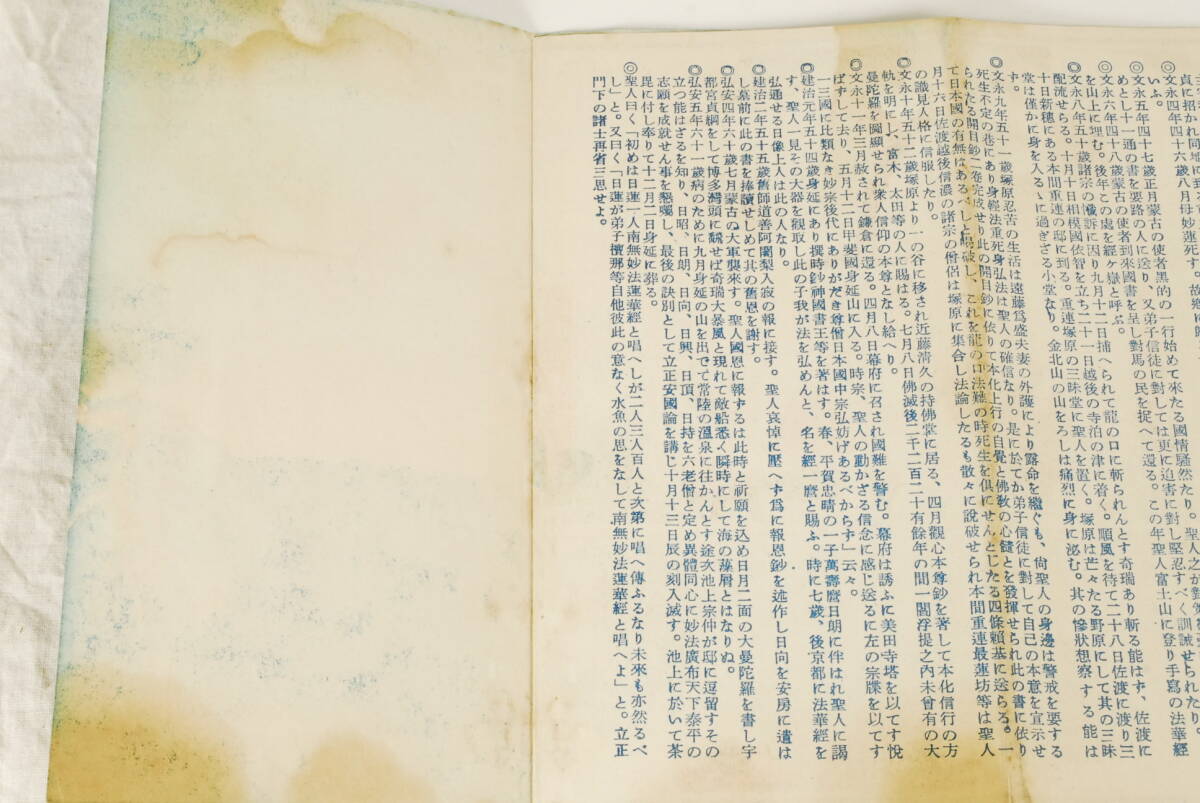 貞に招かれ同地に到
◎文永四年四十六歳八月母妙蓮死す。故郷に
いふ。
◎文永五年四十七歳正月蒙古の使者黑的の一行始めて來たる國情騷然たり。聖人之が對
めとし十一通の書を要路の人に送り、又弟子信徒に對しては更に迫害に對し堅忍すべく訓誡せられたり。
◎文永六年四十八歳蒙古の使者到來國書を呈し對馬の民を捉へて還る。この年聖人富士山に登り手寫の法華經
を山上に埋む。後年この處を經ヶ嶽と呼ぶ。
◎文永八年五十歳諸宗の讒訴に因り九月十二日捕へられて龍の口に斬られんとす奇瑞あり斬る能はず、佐渡に
配流せらる。十月十日相模國依智を立ち二十一日越後の寺泊の津に着く。順風を待て二十八日佐渡に渡り三
十日新穂にある本間重連の邸に到る。重連塚原の三昧堂に聖人を置く。塚原は茫々たる野原にして其の三昧
堂は僅かに身を入るゝに過ぎざる小堂なり。金北山の山をろしは痛烈に身に泌む。其の慘狀想察する能は
ず。
◎文永九年五十一歳塚原忍苦の生活は遠藤爲盛夫妻の外護により露命を繼ぐも、尙聖人の身邊は警戒を要する
死生不定の巷にあり身輕法重死身弘法は聖人の確信なり。是に於てか弟子信徒に對して自己の本意を宣示せ
られたる開目鈔二卷完成せり此の開目鈔に依りて本化上行の自覺と佛敎の心髓とを發揮せられ此の書に依り
て日本國の有無はあるべしと喝破し、これを龍の口法難の時死生を俱にせんとしたる四條賴基に送らる。一
月十六日佐渡越後信濃の諸宗の僧侶は塚原に集合し法論したるも散々に說破せられ本間重連最蓮坊等は聖人
の識見人格に信服したり。
◎文永十年五十二歳塚原より一の谷に移され近藤淸久の持佛堂に居る、四月觀心本尊鈔を著して本化信行の方
軌を明にし、富木、太田等の人に賜はる。七月八日佛滅後二千二百二十有餘年の間一閻浮提之內未曾有の大
曼陀羅を圖顯せられ衆人信仰の本尊となし給へり。
◎文永十一年三月赦されて鎌倉に還る。四月八日幕府に召され國難を警む。幕府は誘ふに美田寺塔を以てす悅
ばずして去り、五月十二日甲斐國身延山に入る。時宗、聖人の動かざる信念に感じ送るに左の宗牒を以てす
一三國に比類なき妙宗後代にありがたき尊僧日本國中宗弘妨げあるべからず」云々。
◎建治元年五十四歳身延にあり撰時鈔神國書王等を著はす。春、平賀忠晴の一子萬壽麿日朗に伴はれ聖人に謁
す、聖人一見その大器を觀取し此の子我が法を弘めんと、名を經一麿と賜ふ。時に七歳、後京都に法華經を
弘通せる日像上人は此の人なり。
◎建治二年五十五歳舊師道善阿闍梨入寂の報に接す。聖人哀悼に壓へず爲に報恩鈔を述作し日向を安房に遣は
し墓前に此の書を捧讀せしめて其の舊恩を謝す。
◎弘安四年六十歳七月蒙古の大軍襲來す。聖人國恩に報ずるは此時と祈願を込め日月二面の大曼陀羅を書し宇
都宮貞綱をして博多灣頭に飜せば奇瑞大暴風と現れて敵船悉く瞬時にして海の藻屑とはなりぬ。
◎弘安五年六十一歳病のために九月身延の山を出でて常陸の溫泉に往かんとす途次池上宗仲が邸に逗留すその
立つ能はざるを知り、日昭、日朗、日向、日興、日頂、日持を六老僧と定め異體同心に妙法廣布天下泰平の
志願を成就せん事を懇囑し、最後の訣別として立正安國論を講じ十月十三日辰の刻入滅す。池上に於いて荼
毘に付し奉りて十二月二日身延に葬る。
◎聖人曰く「初めは日蓮一人南無妙法蓮華經と唱へしが二人三人百人と次第に唱へ傳ふるなり未來も亦然るべ
し」と。又曰く「日蓮が弟子檀那等自他彼此の意なく水魚の思をなして南無妙法蓮華經と唱へよ」と。立正
門下の諸士再省三思せよ。